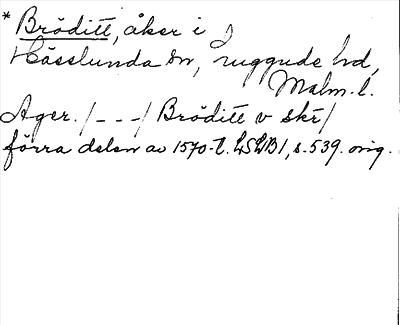 * Bröditt, åker i
Hässlunda sn, Luggude hd,
Malm. l.
Ager. /---/ Bröditt v skr/
förra delen av 1570-t. LSLB1, s. 539. orig.